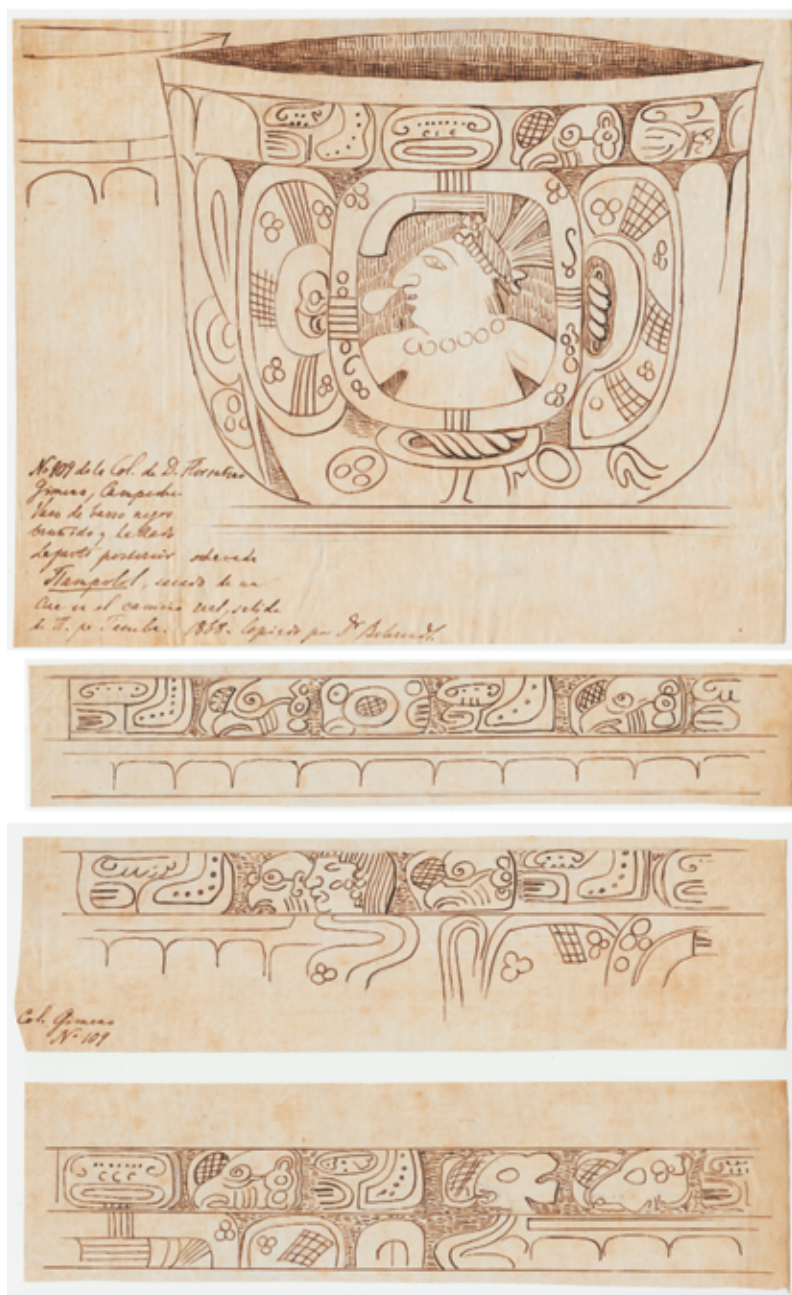 No 109 de la Col. de D. Florentino
Gimeno, Campeche
Vaso de barro negro
bruñido y
La parte posterior ochavada
sacado de un
cue en el camino real, salida
de H. pa 1838. Copiado por Dr Behrendt.
Col. Gimeno
No 109